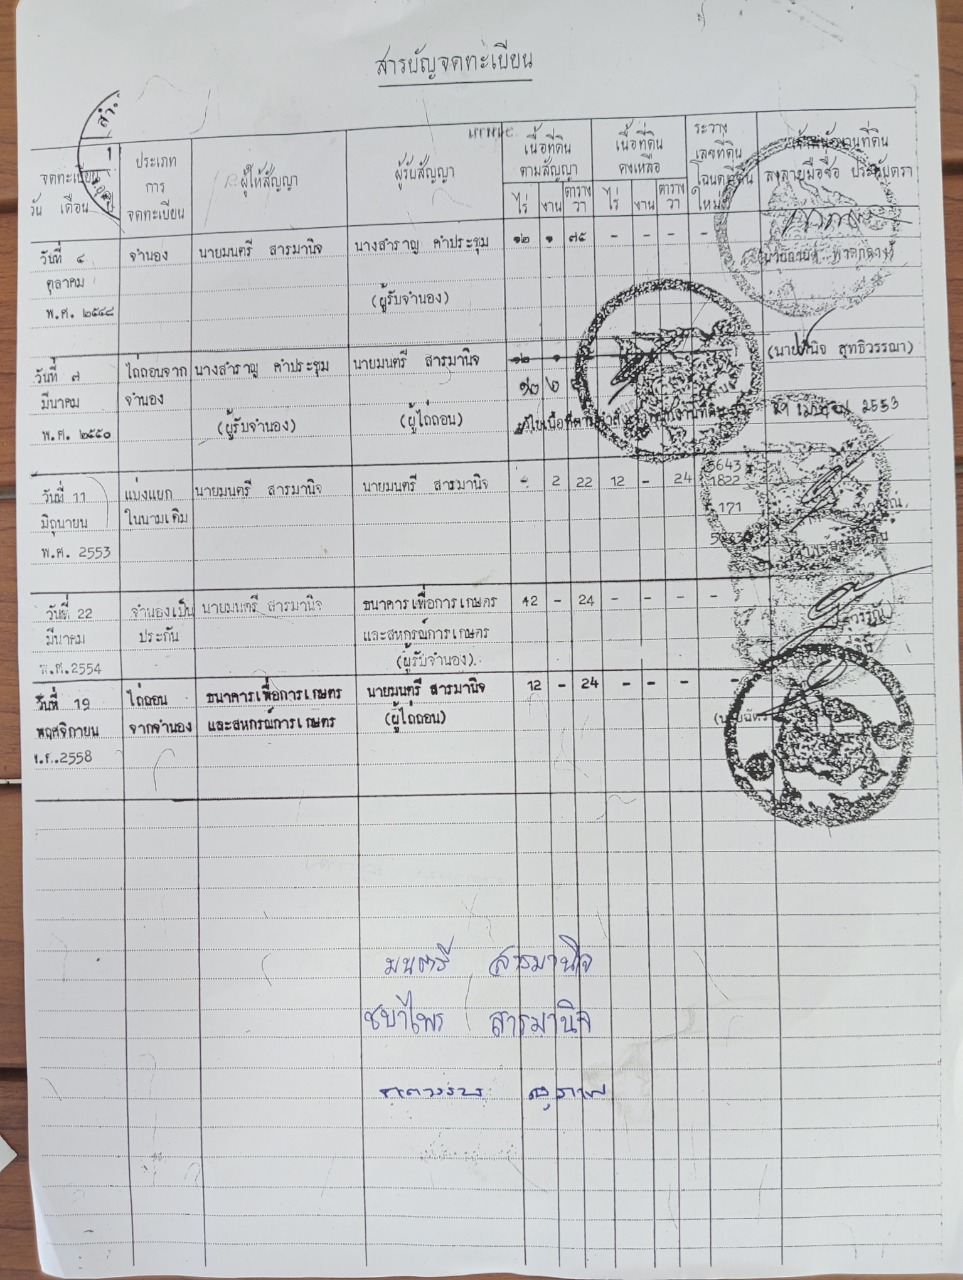 สารบัญจดทะเบียน
จดทะเบียน
วัน เดือน ปี
ประเภท
การ
จดทะเบียน
ผู้ให้สัญญา
ผู้รับสัญญา
เนื้อที่ดิน
ตามสัญญา
ไร่ งาน ตาราง
วา
เนื้อที่ดิน
คงเหลือ
ไร่ งาน ตาราง
วา
ระวาง
เลขที่ดิน
โฉนดที่ดิน
ใหม่
เจ้าพนักงานที่ดิน
ลงลายมือชื่อ ประทับตรา
วันที่ ๔ จำนอง นายมนตรี สารมานิจ นางสำราญ คำประชุม ๑๒ ๑ ๗๕ - - - -
ตุลาคม
พ.ศ. ๒๕๔๘ (ผู้รับจำนอง)
(นายพินิจ สุทธิวรรณา)
วันที่ ๗ ไถ่ถอนจาก นางสำราญ คำประชุม นายมนตรี สารมานิจ ๑๒ ๑
มีนาคม จำนอง ๑๒ ๒
(ผู้รับจำนอง) (ผู้ไถ่ถอน)
พ.ศ. ๒๕๕๐
2553
วันที่ 11 แบ่งแยก นายมนตรี สารมานิจ นายมนตรี สารมานิจ - 2 22 12 - 24 5643
1822
มิถุนายน ในนามเดิม 171
พ.ศ. 2553
วันที่ 22 จำนองเป็น นายมนตรี สารมานิจ ธนาคารเพื่อการเกษตร 12 - 24 - - - -
มีนาคม ประกัน และสหกรณ์การเกษตร
พ.ศ.2554 (ผู้รับจำนอง)
วันที่ 19 ไถ่ถอน ธนาคารเพื่อการเกษตร นายมนตรี สารมานิจ 12 - 24 - - - -
พฤศจิกายน จากจำนอง และสหกรณ์การเกษตร (ผู้ไถ่ถอน)
2558
มนตรี สารมานิจ
ชบาไพร สารมานิจ